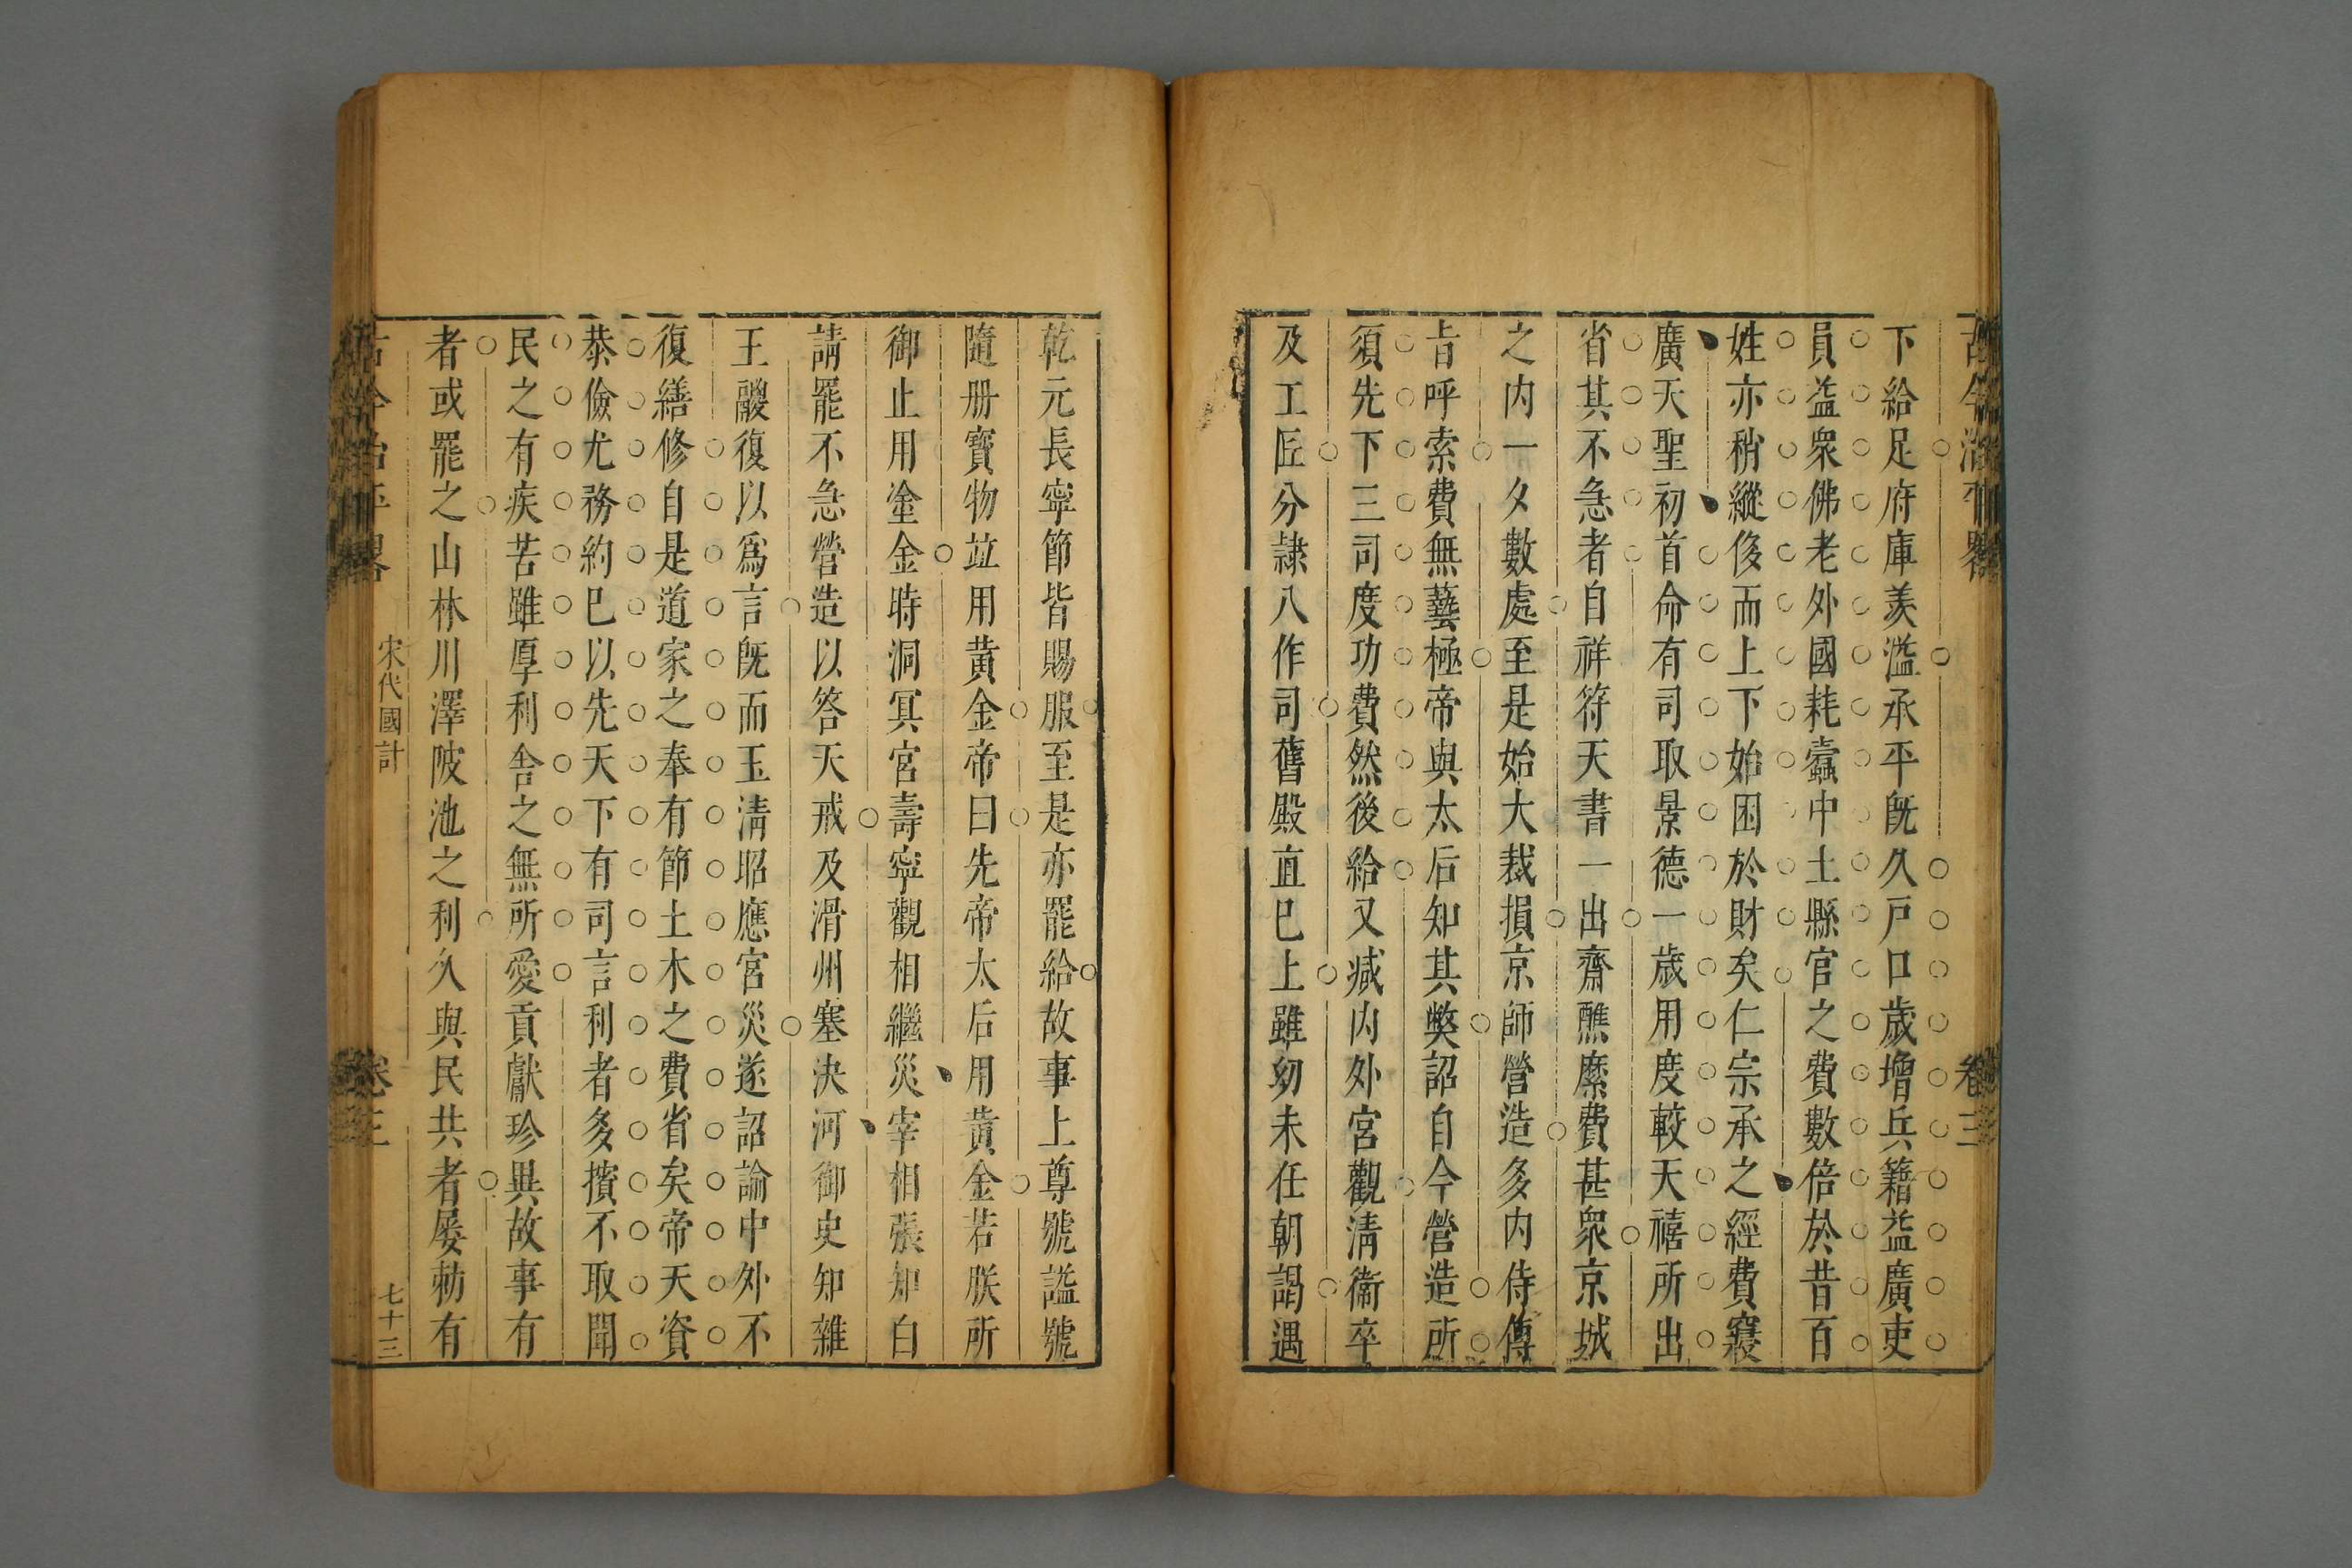 古今治平畧
卷三
下給足府庫羨溢承平旣久戸口歲增兵籍益廣吏
員益衆佛老外國耗蠹中土縣官之費數倍於昔百
姓亦稍縱侈而上下始困於財矣仁宗承之經費寖
廣天聖初首命有司取景德一歲用度較天禧所出
省其不急者自祥符天書一出齋醮糜費甚衆京城
之内一夕數處至是始大裁損京師營造多内侍傳
旨呼索費無藝極帝與太后知其弊詔自今營造所
須先下三司度功費然後給又减内外宮觀淸衞卒
及工匠分隷八作司舊殿直巳上雖幼未任朝謁遇
乾元長寧節皆賜服至是亦罷給故事上尊號謚號
隨册寳物竝用黃金帝曰先帝太后用黃金若朕所
御止用塗金時洞冥宮壽寧觀相繼災宰相張知白
請罷不急營造以答天戒及滑州塞決河御史知雜
王鬷復以爲言旣而玉淸昭應宮災遂詔諭中外不
復繕修自是道家之奉有節土木之費省矣帝天資
恭儉尤務約巳以先天下有司言利者多擯不取聞
民之有疾苦雖厚利舍之無所愛貢獻珍異故事有
者或罷之山林川澤陂池之利久與民共者屡勑有
古今治平畧
宋代國計
卷三
七十三